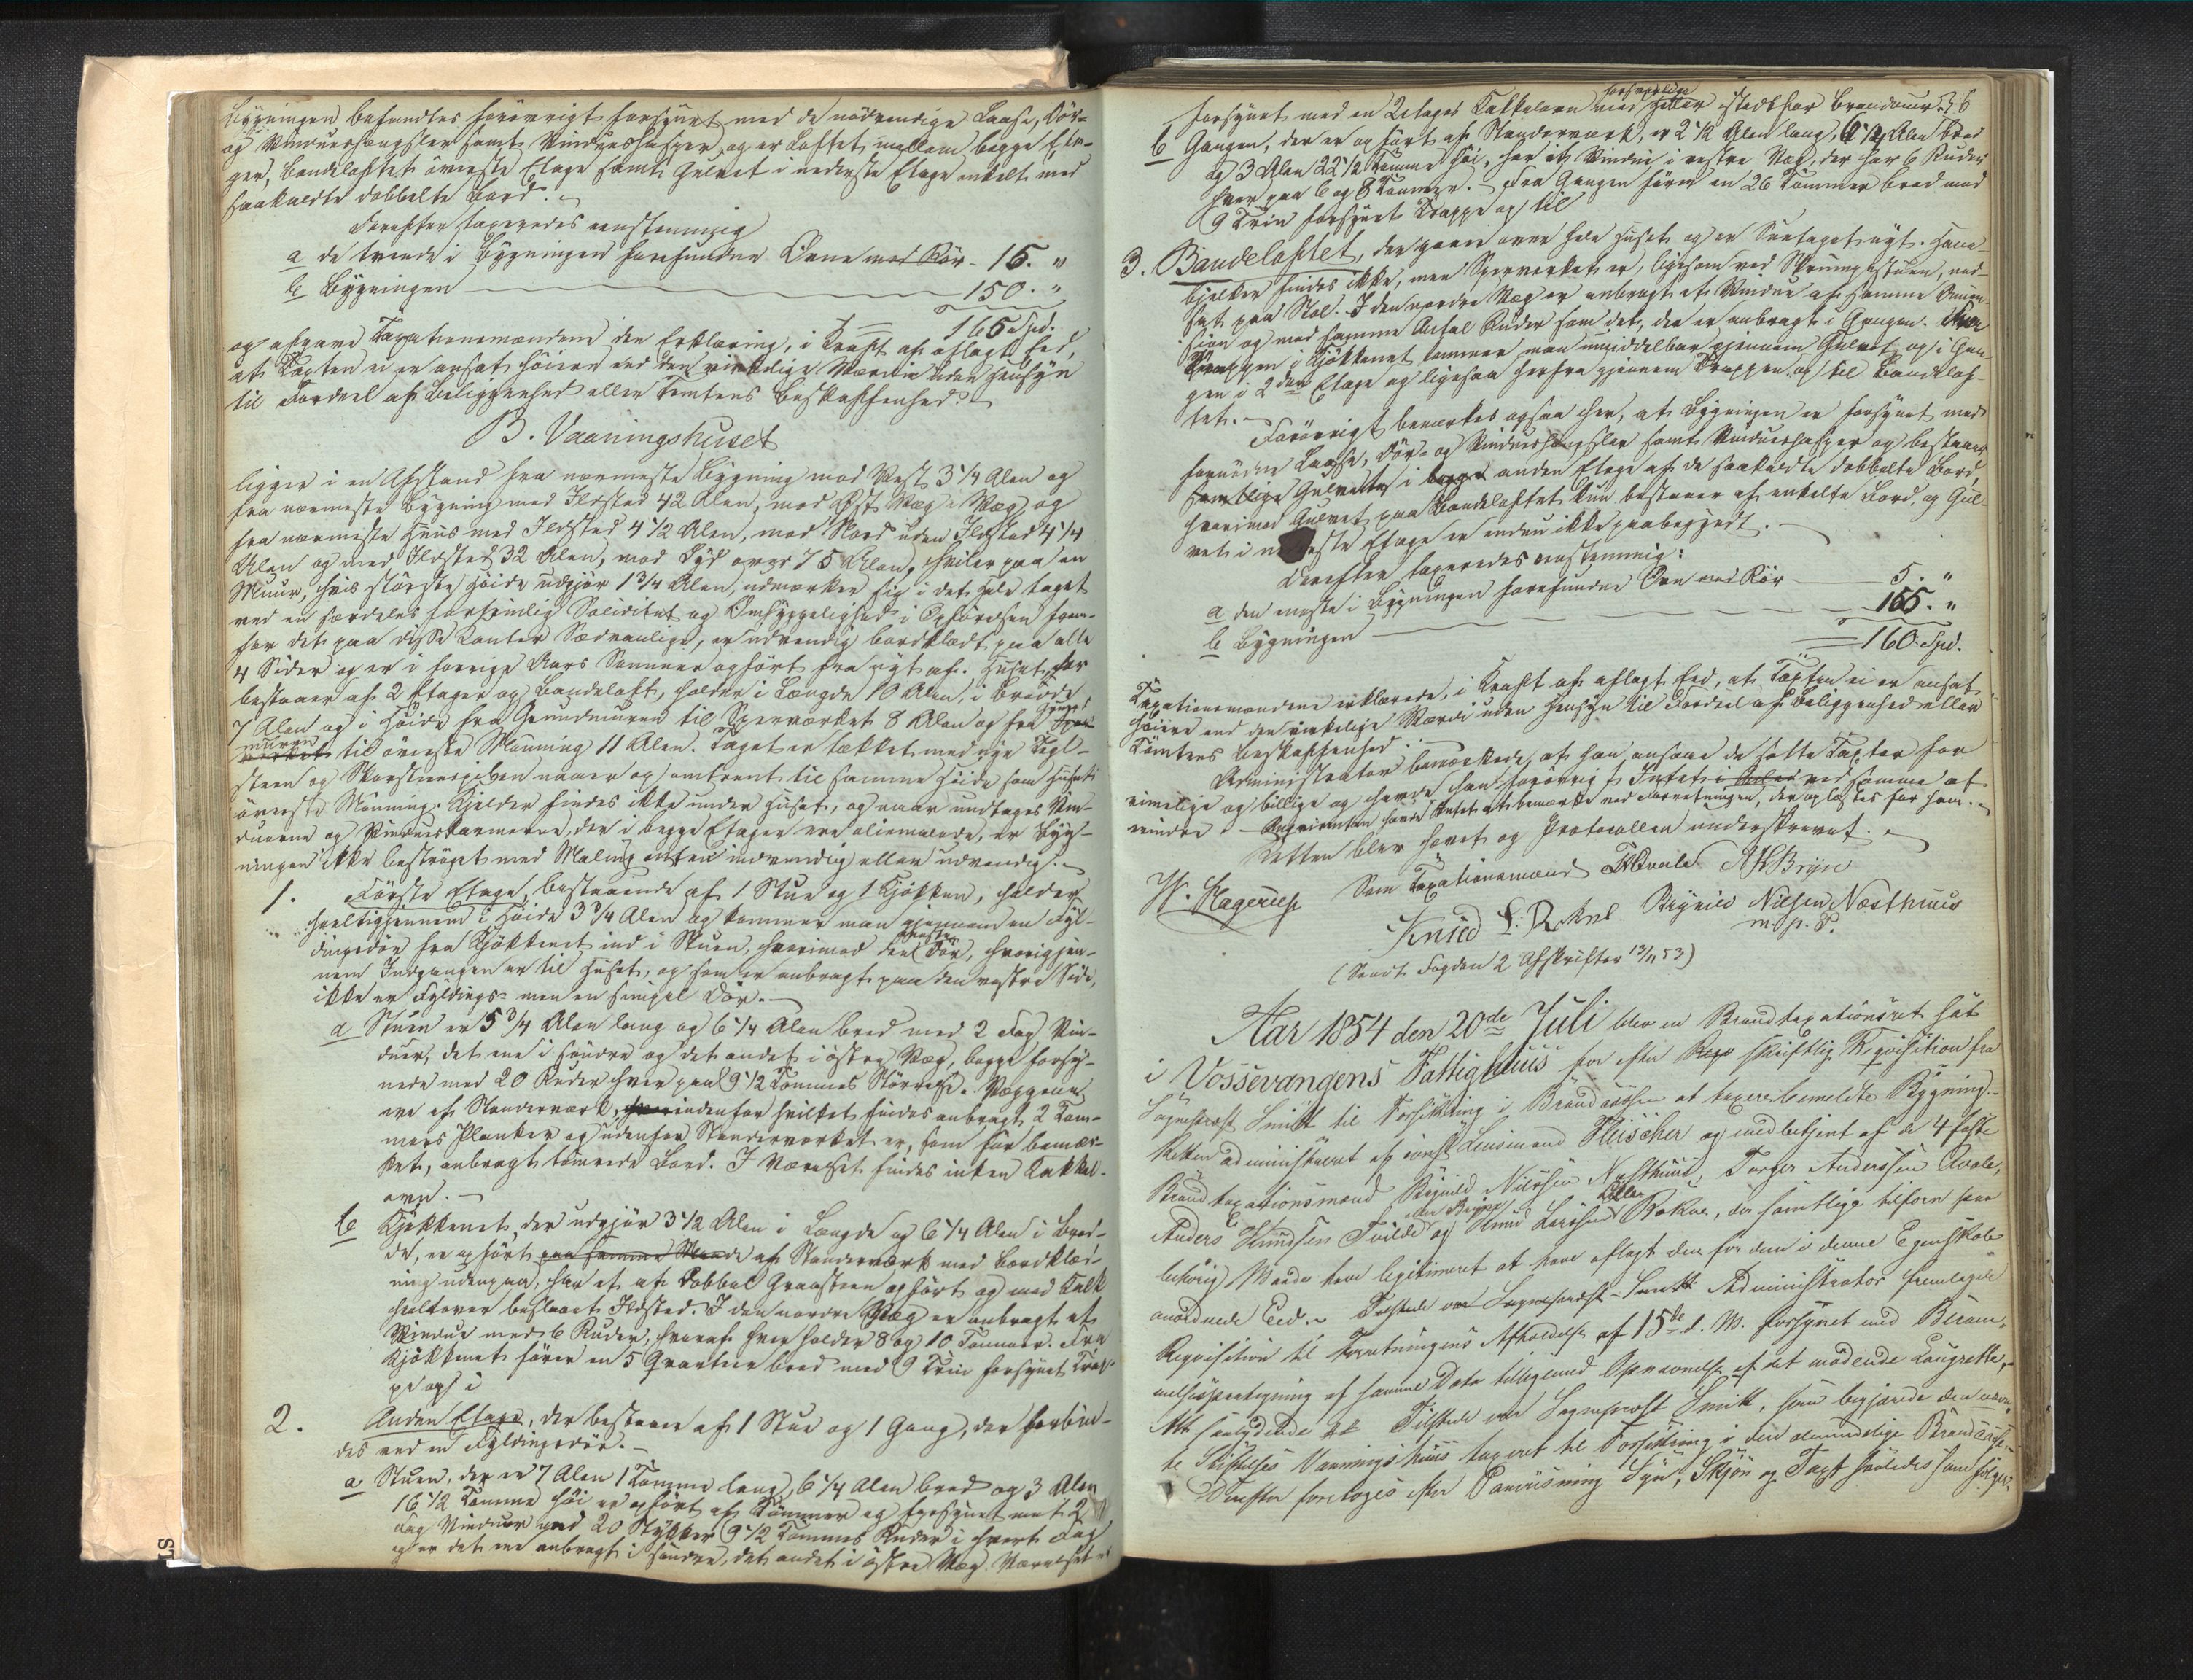 Bygningen befandtes forövrigt forsynet med de nödvendige Laase, Dör-
og Vindueshængsler samt Vindueshasper, og er Loftet mellem begge Eta-
ger, Bandeloftet överste Etage samt Gulvet i nederste Etage enkelt med
saakaldte dobbelte Bord.
Derefter taxeredes eenstemmig
a de tvende i Bygningen forefundne Ovne med Rör - 15. "
b Bygningen 150. "
165 Spd.
og afgave Taxationsmændene den Erklæring, i Kraft af aflagt Eed,
at Taxten ei er ansat höiere end den virkelige Værdie uden Hensyn
til Fordeel af Beliggenhed eller Tomtens Beskaffenhed.
B. Vaaningshuset
ligger i en Afstand fra nærmeste Bygning mod Vest 3 1/4 Alen og
fra nærmeste Bygning med Ildsted 42 Alen, mod Öst Væg i Væg og
fra nærmeste Huus med Ildsted 4 1/2 Alen, mod Nord uden Ildsted 4 1/4
Alen og med Ildsted 32 Alen, mod Syd over 75 Alen, hviler paa en
Muur, hvis störste Höide udgjör 1 3/4 Alen, udmærker sig i det Hele taget
ved en særdeles Soliditet og Omhyggelighed i Opförelsen frem-
for det paa disse Kanter Sædvanlige, er udvendig bordklædt paa alle
4 Sider og er i forrige Aars Sommer opfört fra nyt af. Huset, der
bestaaer af 2 Etager og Bandeloft, holder i Længde 10 Alen, i Bredde
7 Alen og i Höide fra Grundmuren til Sperværket 8 Alen og fra Grund-
muren til överste Mönning 11 Alen. Taget er tækket med nye Tegl-
steen og Skorsteenspiben naaer op omtrent til samme Höide som Husets
överste Mönning. Kjelder findes ikke under Huset, og naar undtages Vin-
duerne og Vindueskarmene, der i begge Etager ere oliemalede, er Byg-
ningen ikke beströget med Maling enten indvendig eller udvendig.
1. Förste Etage, bestaaende af 1 Stue og 1 Kjökken, holder
heeltigjennem i Höide 3 3/4 Alen og kommer man gjennem en Fyl-
dingsdör fra Kjökkenet ind i Stuen, hvorimod den Dör, hvorigjen-
nem Indgangen er til Huset, og som er anbragt paa den vestre Side,
ikke er Fyldings- men en simpel Dör.
a Stuen er 5 3/4 Alen lang og 6 1/4 Alen bred med 2 Fag Vin-
duer, det ene i söndre og det andet i östre Væg, begge forsy-
nede med 20 Ruder hver paa 9 1/2 Tommes Störrelse. Væggene
ere af Standerværk, indenfor hvilket findes anbragt 2 Tom-
mers Planker og udenfor Standerværket er, som för bemær-
ket, anbragt Bord. I Værelset findes ingen Kakkel-
ovn.
b Kjökkenet, der udgjör 3 1/2 Alen i Længde og 6 1/4 Alen i Bred-
de, er opfört paa samme Maade af Standerværk med Bordklæd-
ning udenpaa, har et af dobbel Graasteen opfört og med Kalk
heelt over beslaaet Ildsted. I den nordre Væg er anbragt et
Vindue med 6 Ruder, hvoraf hver holder 8 og 10 Tommer. Fra
Kjökkenet förer en 5 Qvarteer bred med 9 Trin forsynet Trap-
pe op i
2. Anden Etage, der bestaaer af 1 Stue og 1 Gang, der forbin-
des ved en Fyldingsdör.
a Stuen, der er 7 Alen 1 Tomme lang, 6 1/4 Alen bred og 3 Alen
16 1/2 Tomme höi er opfört af Tömmer og forsynet med 2
Fag Vinduer med 20 Stykker 9 1/2 Tommes Ruder i hvert Fag
og er det ene anbragt i söndre, det andet i östre Væg. Værelset er
forsynet med en 2 Etages Kakkelovn med istedetfor Brandmuur
b Gangen, der er opfört af Standerværk, er 2 1/2 Alen lang, 6 1/4 Alen bred
og 3 Alen 22 1/2 Tomme höi, har et Vindue i vestre Væg, der har 6 Ruder
hver paa 6 og 8 Tommer. Fra Gangen förer en 26 Tommer bred med
9 Trin forsynet Trappe op til
3. Bandeloftet, der gaaer over hele Huset og er Suutaget nyt. Hane-
bjelker findes ikke, men Sperværket er, ligesom ved Skrumpestuen, ned-
sat paa Stol. I den nordre Væg er anbragt et Vindue af samme Dimen-
sion og med samme Antal Ruder som det, der er anbragt i Gangen. Fra
Trappen i Kjökkenet kommer man umiddelbar gjennem Gulvet op i Gan-
gen i 2den Etage og ligesaa herfra gjennem Trappen op til Bandelof-
tet.
Forövrigt bemærkes ogsaa her, at Bygningen er forsynet med
fornödne Laase, Dör- og Vindueshængsler samt Vindueshasper og bestaaer
samtlige Gulvene i anden Etage af de saakaldte dobbelte Bord,
hvorimod Gulvet paa Bandeloftet kun bestaaer af enkelte Bord, og Gul-
vet i nederste Etage er endnu ikke paabegyndt.
Derefter taxeredes eenstemmig:
a den eneste i Bygningen forefundne Ovn med Rör 5. "
b Bygningen 155. "
160 Spd.
Taxationsmændene erklærede, i Kraft af aflagt Eed, at Taxten ei er ansat
höiere end den virkelige Værdi uden Hensyn til Fordeel af Beliggenhed eller
Tomtens Beskaffenhed.
Administrator bemærkede, at han ansaae de satte Taxter for
rimelige og billige og havde han forövrigt Intet ved samme at
erindre. - Requirenten havde Intet at bemærke ved Forretningen, der oplæstes for ham.
Retten blev hævet og Protocollen underskrevet.
H. Hagerup Som Taxationsmænd T A Qvale A K Brijn
Knud L. Rokne Brynild Nilsen Næsthuus
m. p. P.
(Sendt Fogden 2 Afskrifter 13/11 53)
Aar 1854 den 20de Juli blev en Brandtaxationsret sat
i Vossevangens Fattighuus for efter skriftlig Reqvisition fra
Sogneprest Smitt til Forsikring i Brandcassen at taxere bemeldte Bygning.
Retten administreret af const. Lensmand Fleischer og medbetjent af de 4 faste
Brandtaxationsmænd Brynild Nilssen Næsthuus, Torger Anderssen Qvale,
Anders Knudsen Tvilde og Knud Larssen Rokne, der samtlige tilforn paa
lovlig Maade have legitimeret at have aflagt den for dem i denne Egenskab
anordnede Eed. Tilstede var Sogneprest Smitt. Administrator fremlagde
Reqvisition til Forretningens Afholdelse af 15de d. M. forsynet med Beram-
melsespaategning af samme Dato tilligemed Opnævnelse af det mödende Laugrette,
Alt saalydende Tilstede var Sogneprest Smitt, som begjærede den nævn-
te Stiftelses Vaaningshuus taxeret til Forsikring i den almindelige Brandcasse.
Derefter foretoges efter Paaviisning Syn, Skjön og Taxt saaledes som fölger: